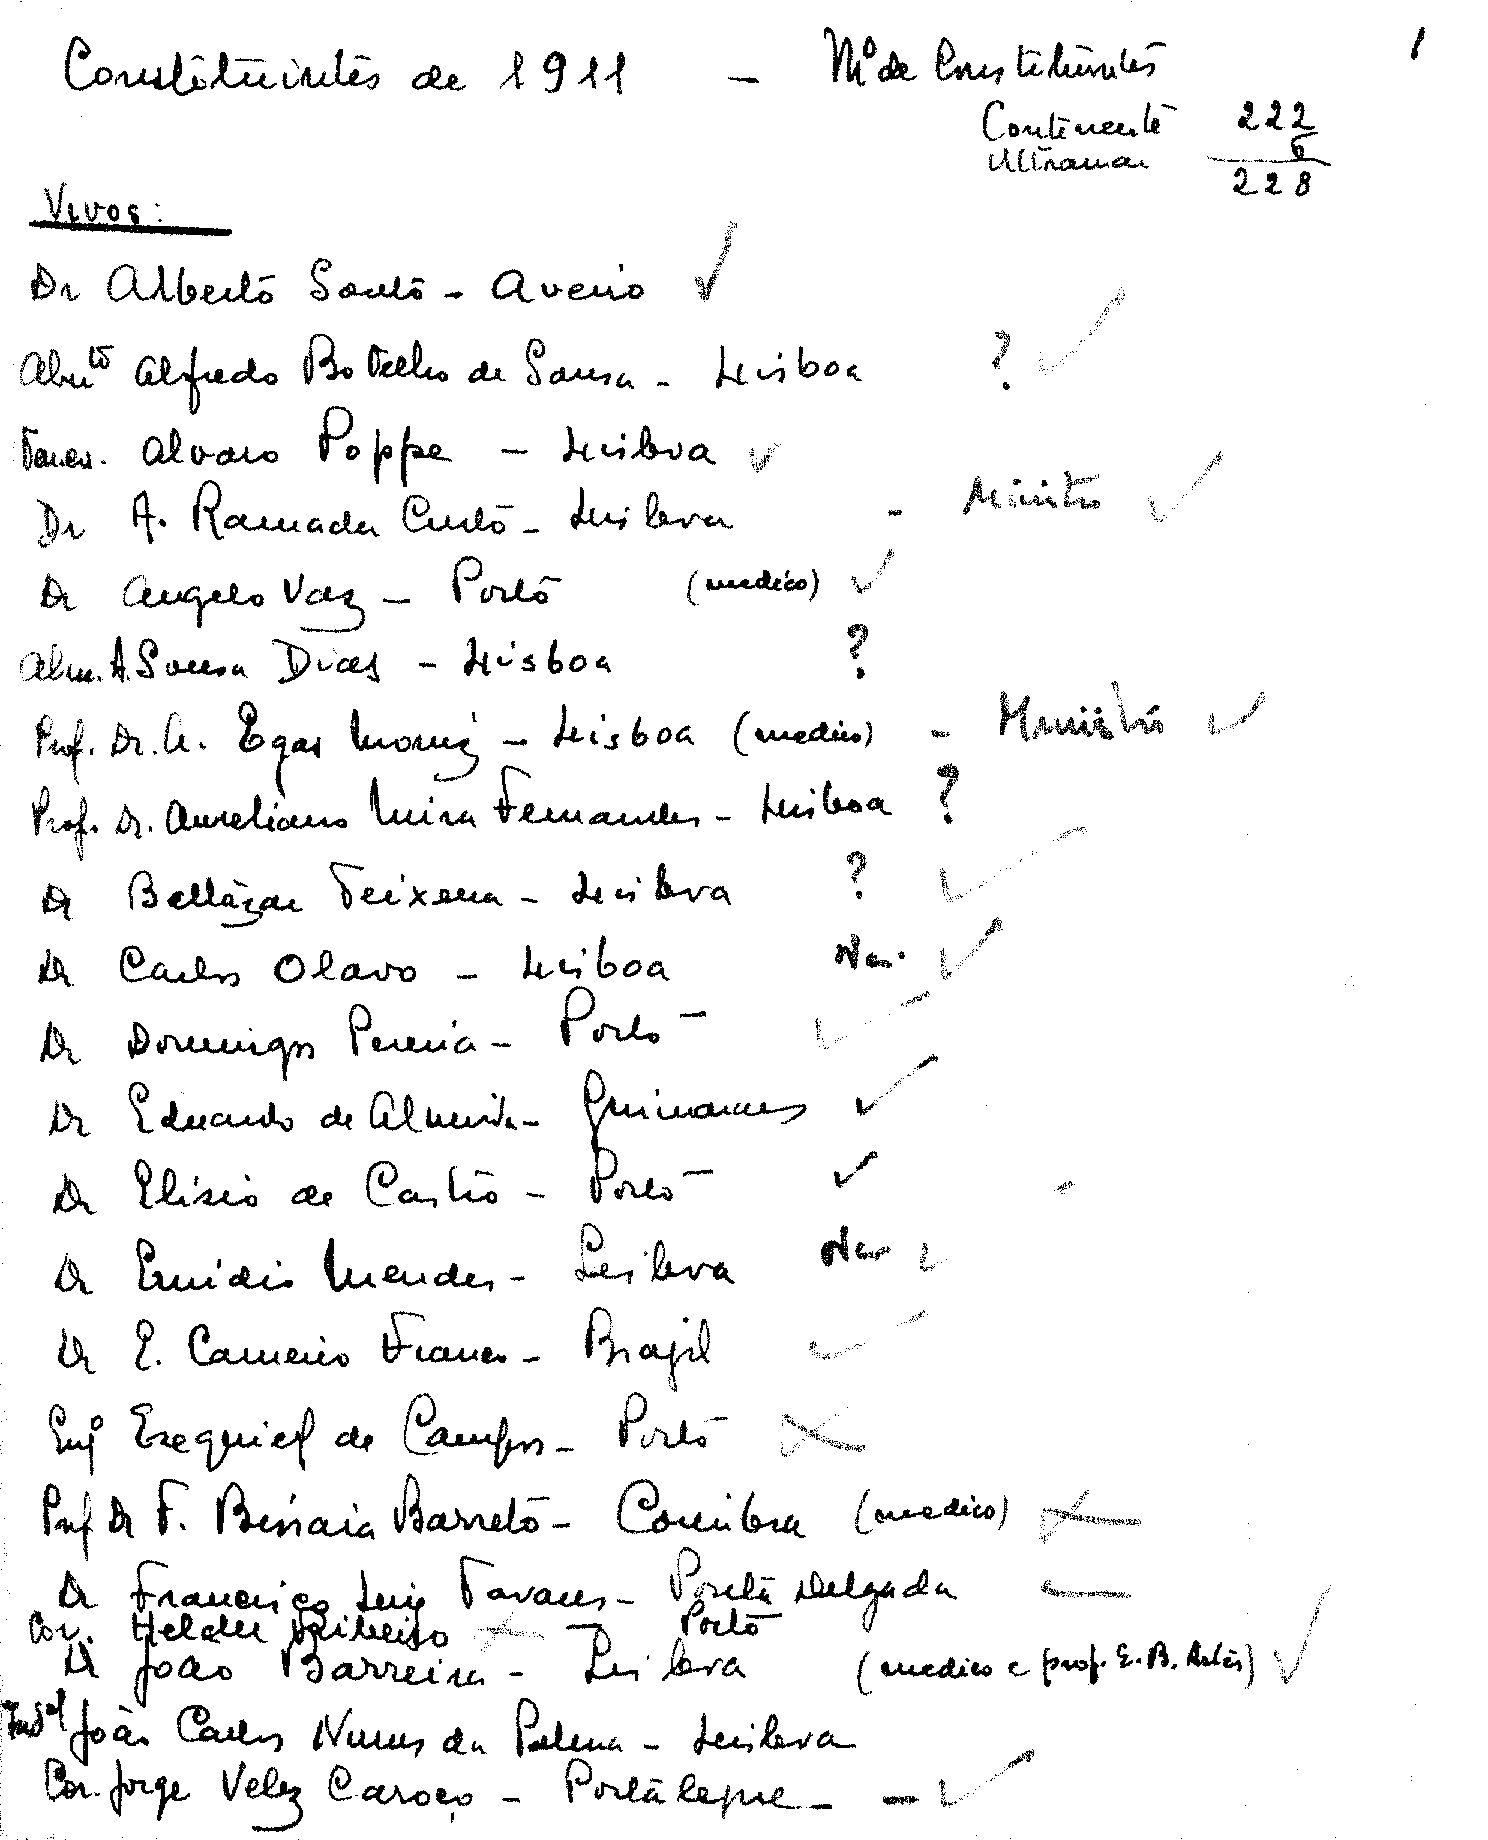 Constituintes de 1911 - Nº de Constituintes 1
Continente 222
Ultramar 6
228
Vivos:
Dr Alberto Souto - Aveiro ✓
Almte Alfredo Botelho de Sousa - Lisboa ? ✓
Alvaro Poppe - Lisboa ✓
Dr A. Ramada Curto - Lisboa - Ministro ✓
Dr Angelo Vaz - Porto (medico) ✓
Alm. A. Sousa Dias - Lisboa ?
Prof. Dr. A. Egas Moniz - Lisboa (medico) - Ministro ✓
Prof. Dr. Aureliano Mira Fernandes - Lisboa ?
Dr Baltazar Teixeira - Lisboa ? ✓
Dr Carlos Olavo - Lisboa ✓
Dr Domingos Pereira - Porto ✓
Dr Eduardo de Almeida - Guimaraes ✓
Dr Elisio de Castro - Porto ✓
Dr Emidio Mendes - Lisboa ✓
Dr E. Carneiro Franco - Brazil ✓
Engº Ezequiel de Campos - Porto X
Prof Dr F. Bissaia Barreto - Coimbra (medico) X
Dr Francisco Luiz Tavares - Ponta Delgada —
Cor. Helder Ribeiro X - Porto
Dr João Barreira - Lisboa (medico e prof. E. B. Artes) ✓
Indal João Carlos Nunes da Palma - Lisboa
Cor. Jorge Velez Caroço - Portalegre - - ✓